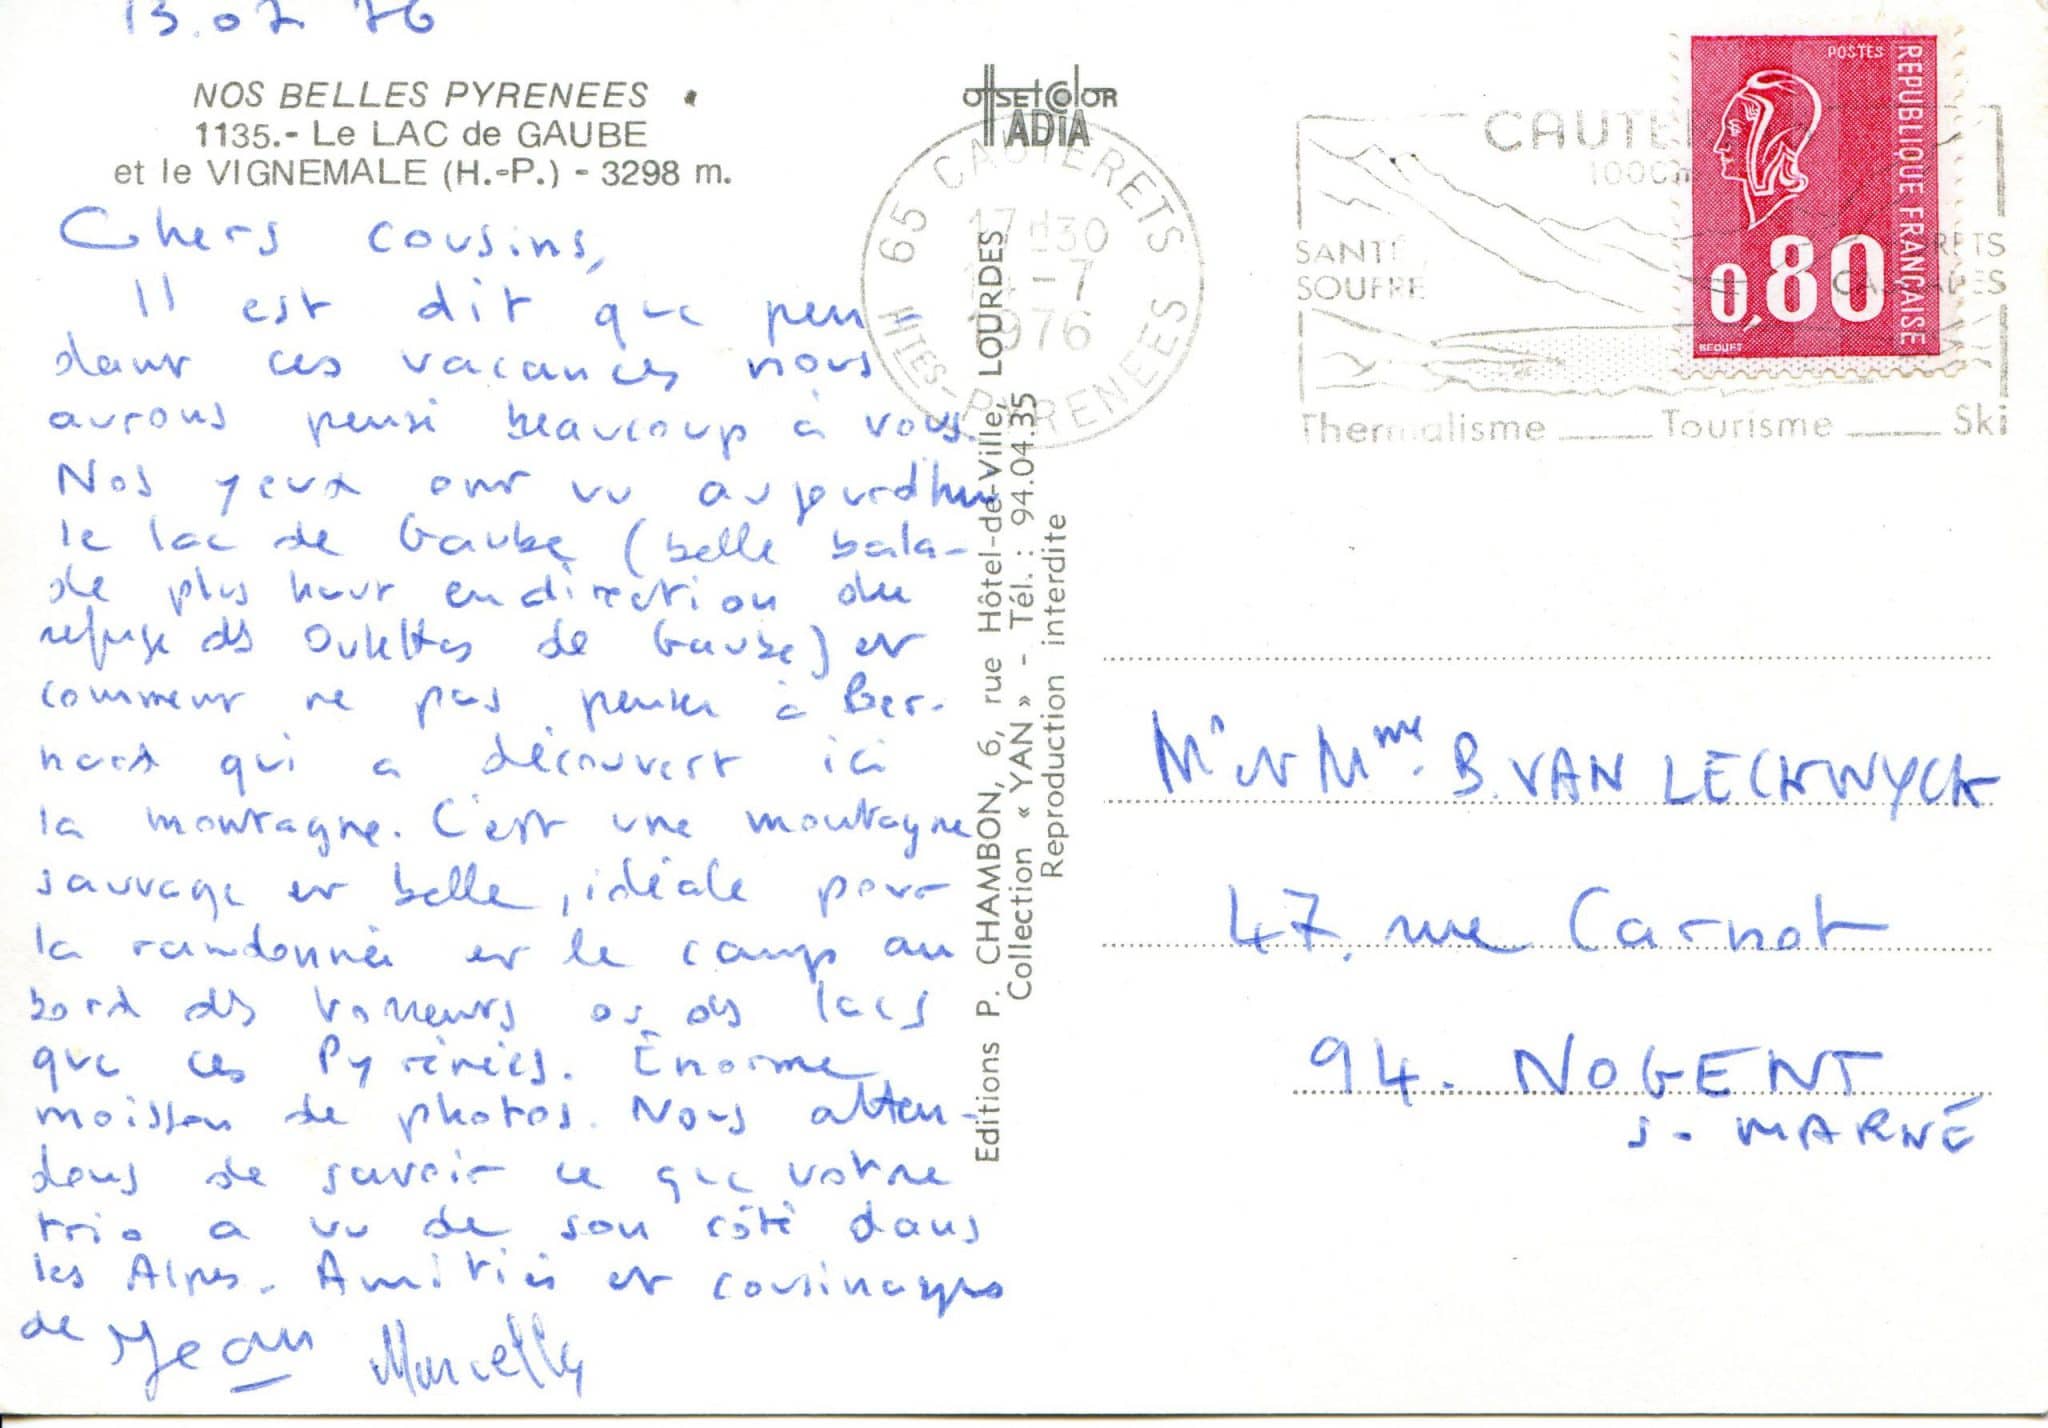 13.07.76
NOS BELLES PYRENEES
1135.- Le LAC de GAUBE
et le VIGNEMALE (H.-P.) - 3298 m.
Chers cousins,
Il est dit que pen=
dant ces vacances nous
aurons pensé beaucoup à vous.
Nos yeux ont vu aujourd'hui
le lac de Gaube (belle bala-
de plus haut en direction du
refuge des Oulettes de Gaube) et
comment ne pas penser à Ber-
nard qui a découvert ici
la montagne. C'est une montagne
sauvage et belle, idéale pour
la randonnée et le camp au
bord des torrents ou des lacs
que ces Pyrénées. Énorme
moisson de photos. Nous atten-
dons de savoir ce que votre
trio a vu de son côté dans
les Alpes. Amitiés et cousinages
de Jean Marcelle
offset Color
ADIA
65 CAUTERETS
17 H30
-7
1976
HTES-PYRENEES
Editions P. CHAMBON, 6, rue Hôtel-de-Ville, LOURDES
Collection « YAN » - Tél. : 94.04.35
Reproduction interdite
CAUTE
1000m
SANTÉ
SOUFRE
RETS
CASCADES
Thermalisme ____ Tourisme ____ Ski
POSTES
REPUBLIQUE FRANCAISE
0,80
BEQUET
Mr et Mme. B. VAN LECKWYCK
47, rue Carnot
94. NOGENT
s. MARNE